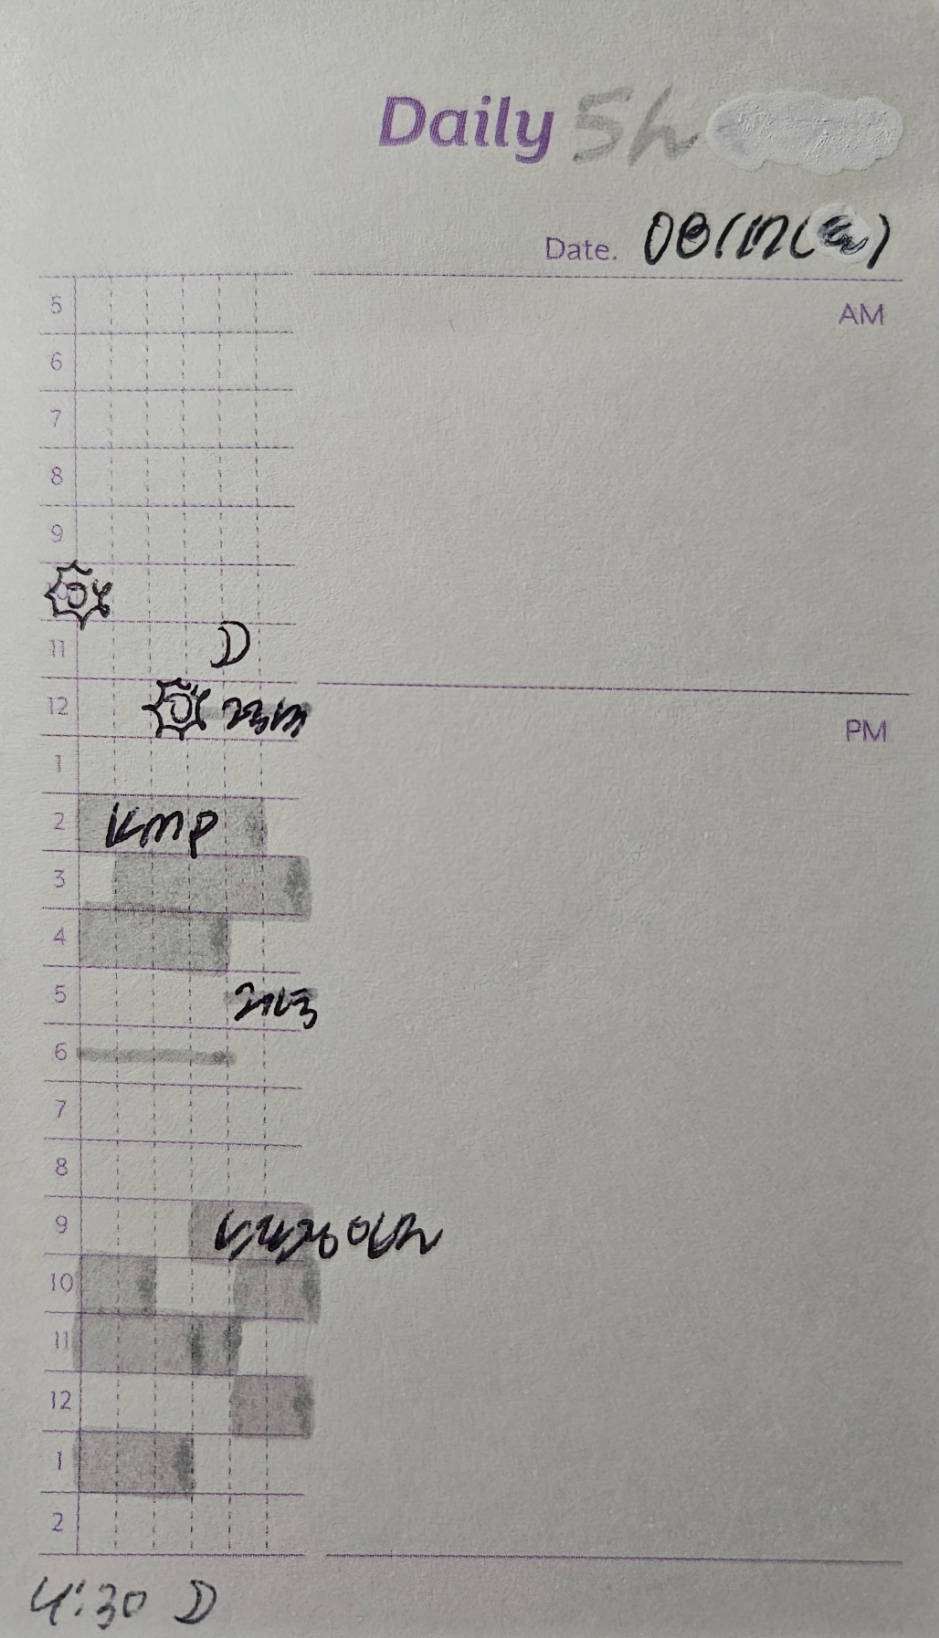 Daily 5h
Date. 08/17( )
AM
5
6
7
8
9
11
12
PM
1
2 KMP
3
4
5
6
7
8
9
10
11
12
1
2
4:30